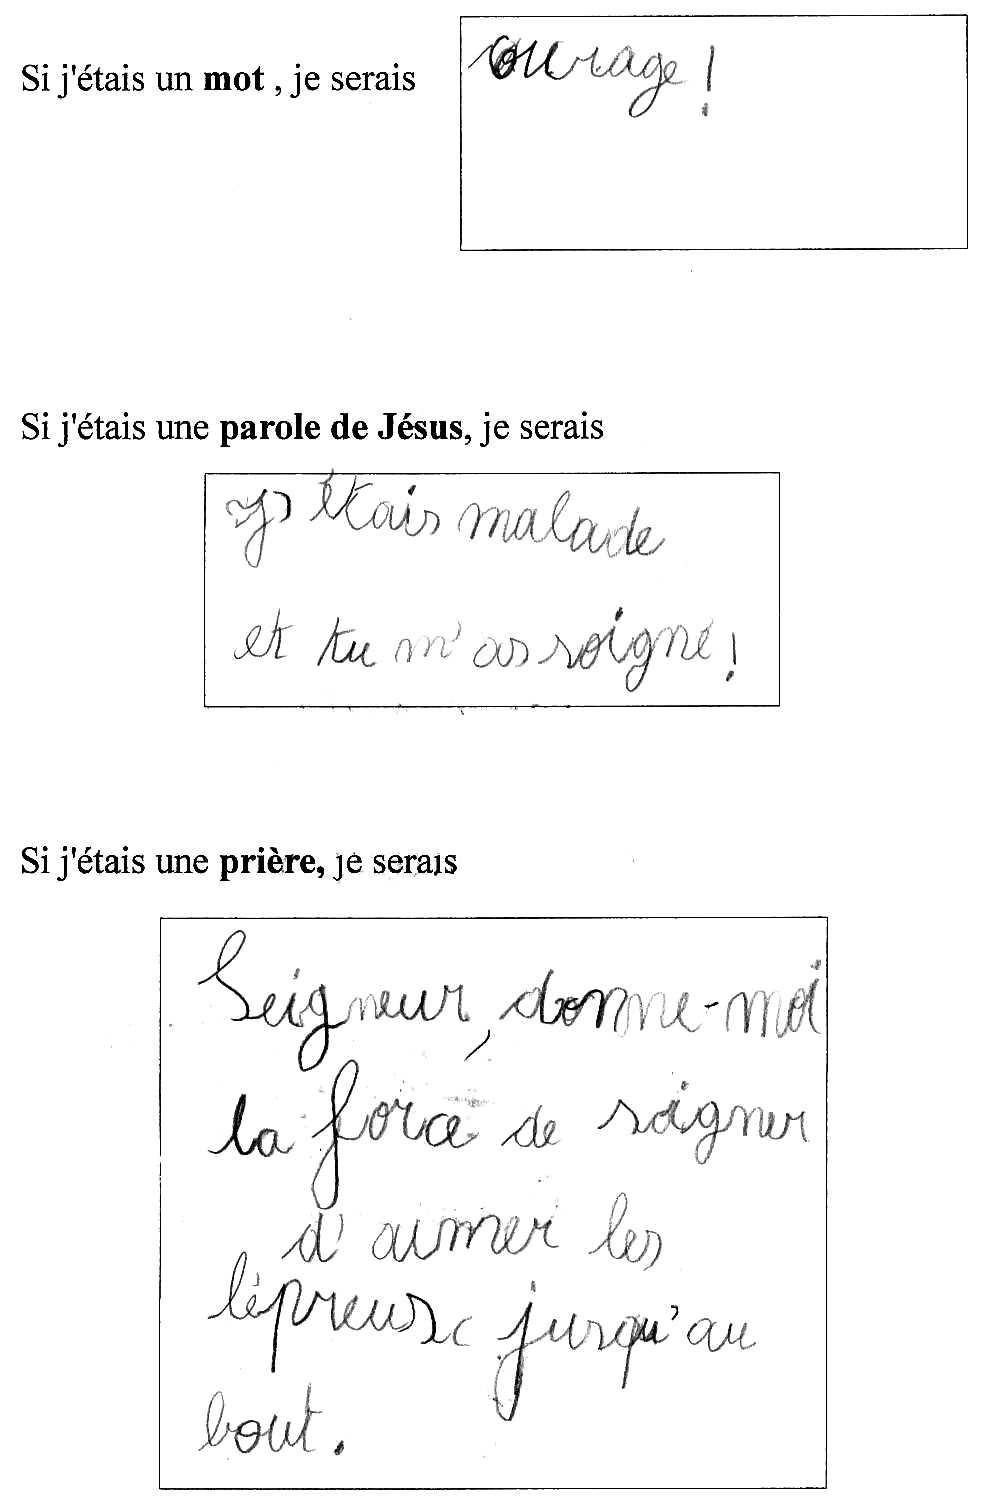 Si j'étais un mot , je serais
courage !
Si j'étais une parole de Jésus, je serais
J'étais malade
et tu m'as soigné !
Si j'étais une prière, je serais
Seigneur, donne-moi
la force de soigner
d'aimer les
lépreux jusqu'au
bout.